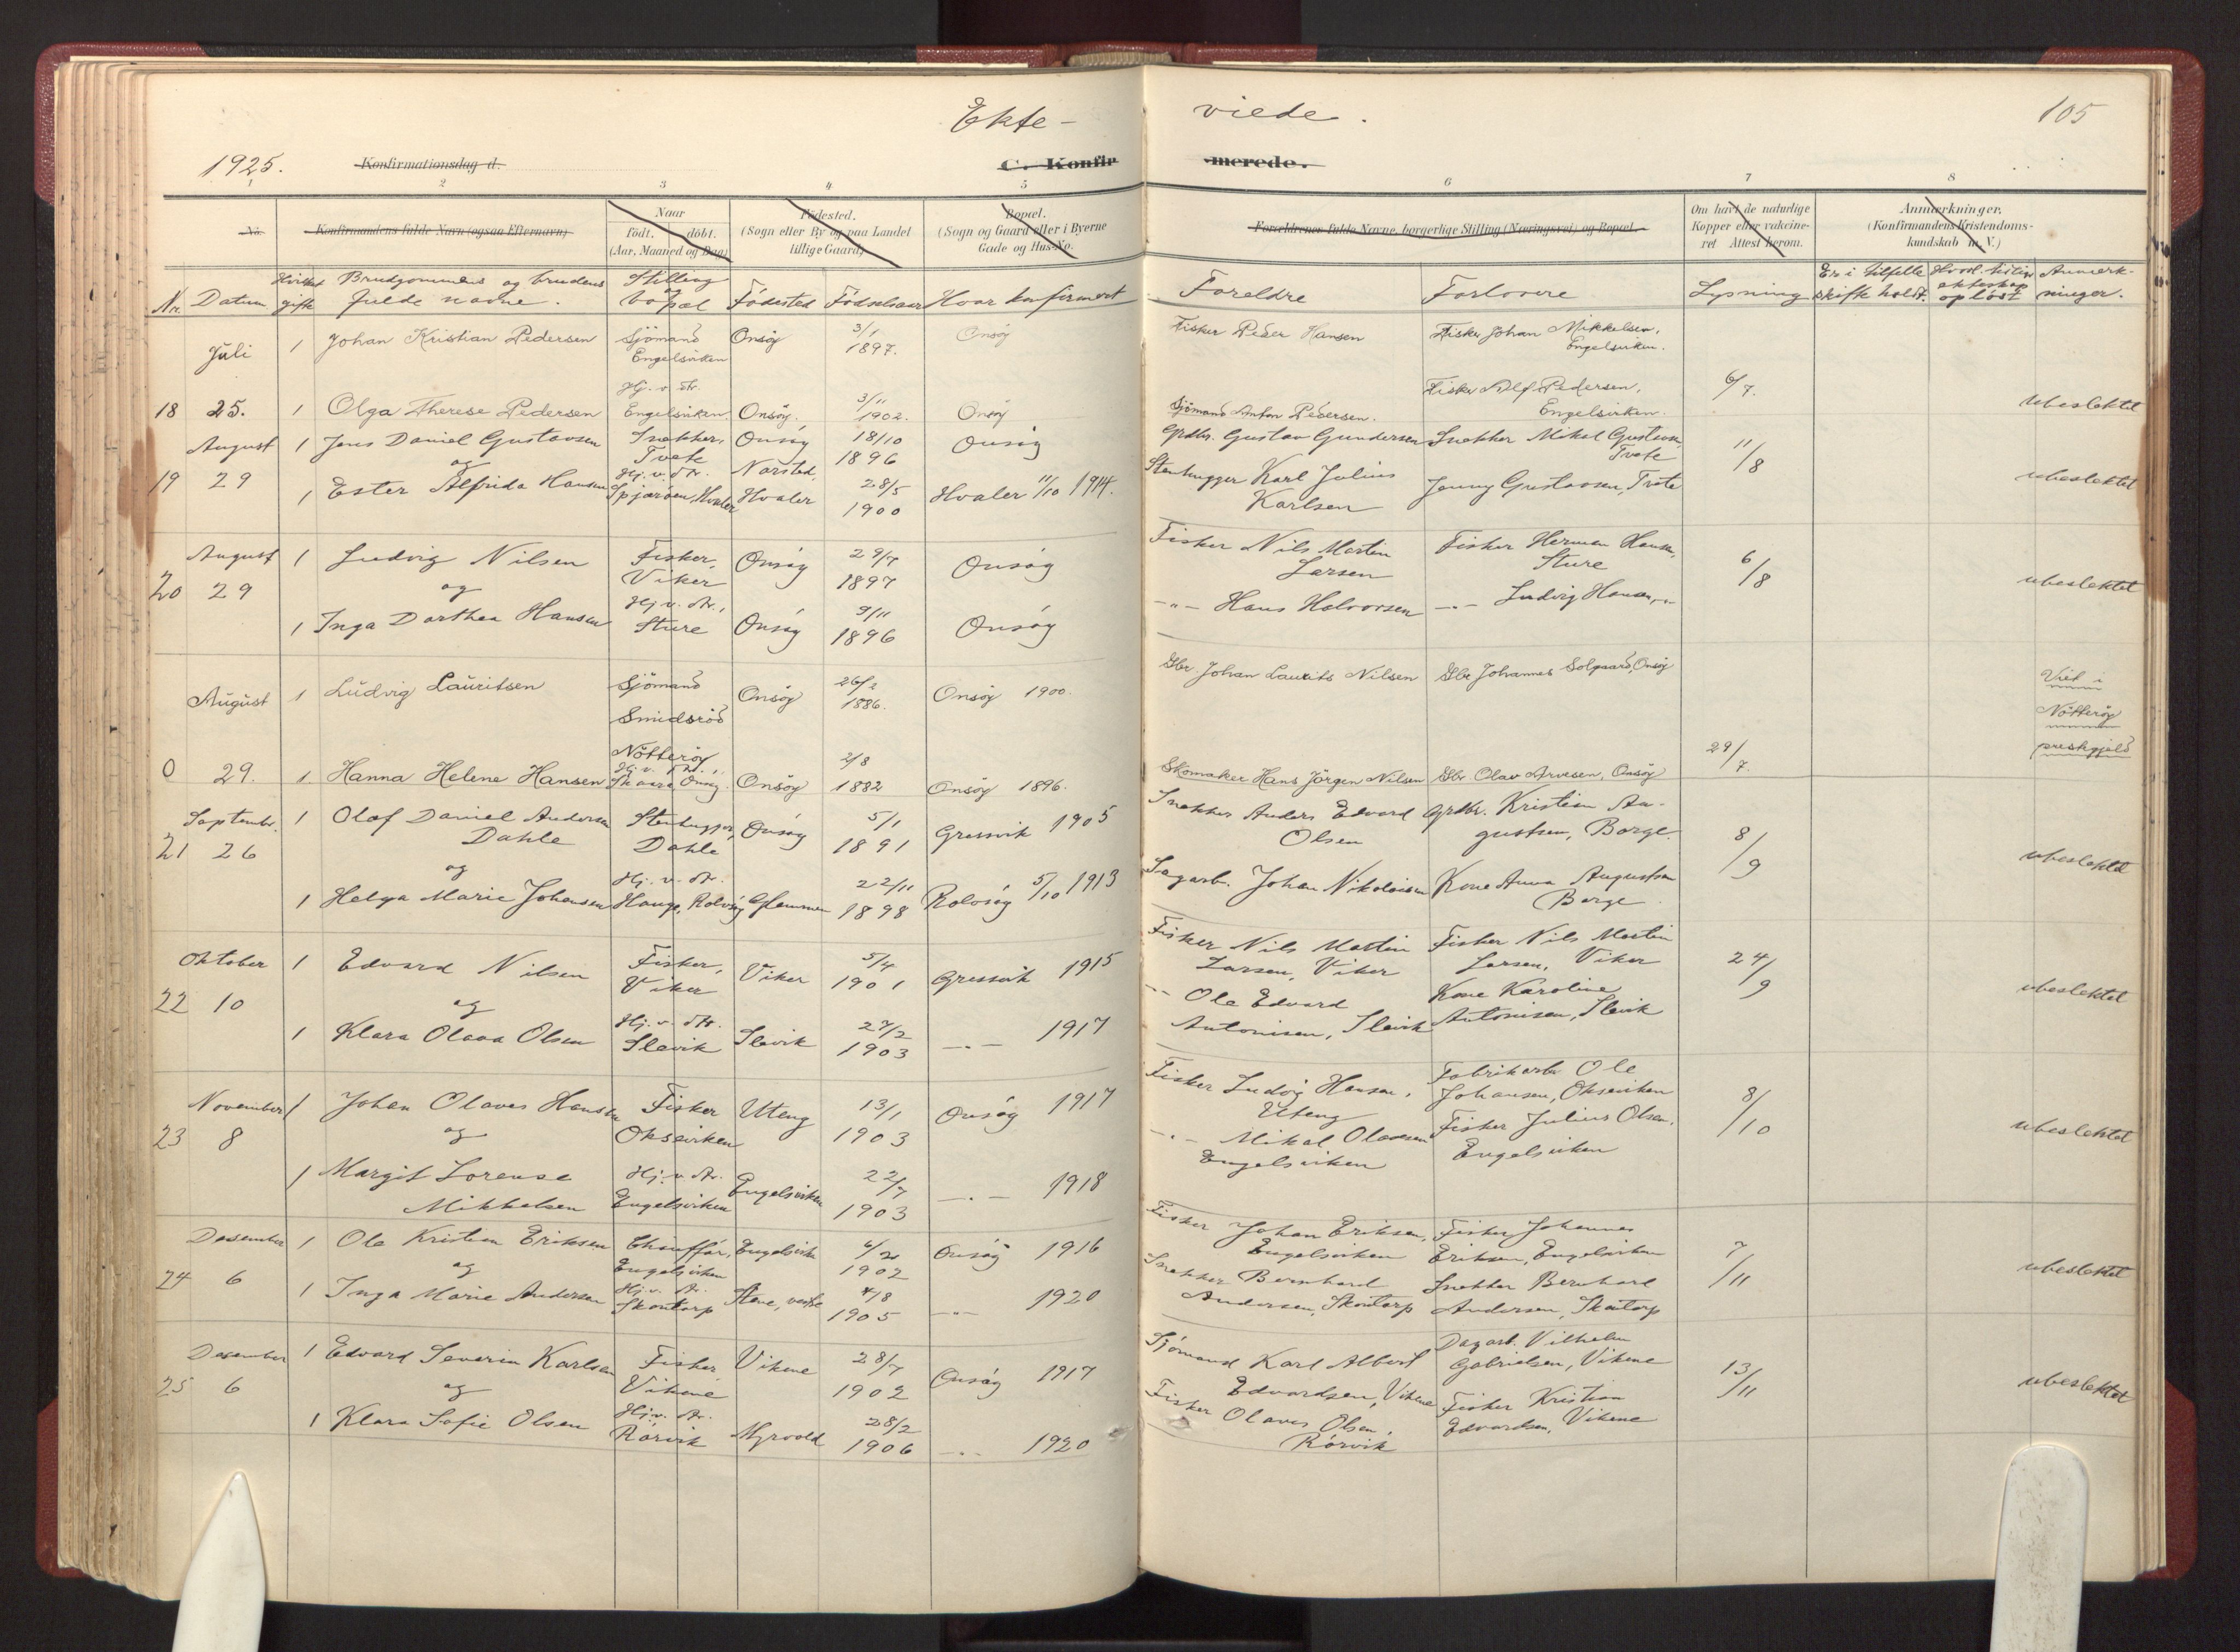 Ekte- viede. 105
1925. Konfirmationsdag d. C. Konfirmerede.
1 2 3 4 5 6 7 8
No. Konfirmandens fulde Navn (ogsaa Efternavn) Naar født. døbt. (Aar, Maaned og Dag) Fødested. (Sogn eller By og paa Landet tillige Gaard) Bopæl. (Sogn og Gaard eller i Byerne Gade og Hus-No. Forældrenes fulde Navne, borgerlige Stilling (Næringsvei) og Bopæl. Om havt de naturlige Kopper eller vakcineret Attest herom. Anmærkninger. (Konfirmandens Kristendomskundskab m. V.)
Nr. Datum Hvilket gifte Brudgommens og brudens fulde navne. Stilling og bopæl Födested Födselsaar Hvor konfirmert Foreldre Forlovere Lysning Er i tilfelle skifte holdt. Hvord. tidl. ekteskap oplöst Anmerkninger.
Juli 1 Johan Kristian Pedersen Sjömand Engelsviken Onsöy 3/1 1897. Onsöy Fisker Peder Hansen Fisker Johan Mikkelsen, Engelsviken.
18 25. 1 Olga Therese Pedersen Hj. v. Fr. Engelsviken Onsöy. 3/11 1902. Onsöy Sjömand Anton Pedersen. Fisker Alf Pedersen, Engelsviken. 6/7. ubeslektet
August 1 Jens Daniel Gustavsen Snekker, Tvete Onsöy 18/10 1896 Onsöy Grdbr. Gustav Gundersen Snekker Mikal Gustavsen Tvete 11/8
og
19 29 1 Ester Alfrida Hansen Hj. v. Fr. Spjæröen, Hvaler Norsted, Hvaler 28/5 1900 Hvaler 11/10 1914. Stenhugger Karl Julius Karlsen Jenny Gustavsen, Tvete ubeslektet
August 1 Ludvig Nilsen Fisker, Viker Onsöy 29/7 1897 Onsöy Fisker Nils Martin Larsen Fisker Herman Hansen, Sture 6/8
20 29 og ubeslektet
1 Inga Dorthea Hansen Hj. v. Fr., Sture Onsöy 9/11 1896 Onsöy -"- Hans Halvorsen -"- Ludvig Hansen, -"-
August 1 Ludvig Lauritsen Sjömand Smidsröd Nötteröy Onsöy 26/2 1886. Onsöy 1900. Gbr. Johan Laurits Nilsen Gbr. Johannes Solgaard, Onsöy Viet i Nötteröy prestegjeld
0 29. 1 Hanna Helene Hansen Hj. v. Fr., Skaare Onsöy. Onsöy 2/8 1882 Onsöy 1896. Skomaker Hans Jörgen Nilsen Gbr. Olav Arvesen, Onsöy 29/7.
September 1 Olaf Daniel Andersen Dahle Stenhugger, Dahle Onsöy 5/1 1891 Gressvik 1905 Snekker Anders Edvard Olsen Grdbr. Kristian Augustsen, Borge. 8/9
21 26 og ubeslektet
1 Helga Marie Johansen Hj. v. Fr. Hauge, Rolvsöy Glemmen 22/11 1898 Rolvsöy 5/10 1913 Sagarb. Johan Nikolaisen Kone Anna Augustsen Borge.
Oktober 1 Edvard Nilsen Fisker, Viker Viker 5/4 1901 Gressvik 1915 Fisker Nils Martin Larsen, Viker Fisker Nils Martin Larsen, Viker 24/9
22 10 og ubeslektet
1 Klara Olava Olsen Hj. v. Fr. Slevik Slevik 27/2 1903 -"- 1917 -"- Ole Edvard Antonisen, Slevik Kone Karoline Antonisen, Slevik
November 1 Johan Olaves Hansen Fisker Okseviken Uteng 13/1 1903 Onsöy 1917 Fisker Ludvig Hansen, Uteng Fabrikarb. Ole Johansen, Okseviken 8/10
23 8 og ubeslektet
1 Margit Lorense Mikkelsen Hj. v. Fr. Engelsviken Engelsviken 22/7 1903 -"- 1918 -"- Mikal Olavesen Engelsviken Fisker Julius Olsen, Engelsviken
Desember 1 Ole Kristian Eriksen Chauffør, Engelsviken Engelsviken 6/2 1902 Onsöy 1916 Fisker Johan Eriksen, Engelsviken Fisker Johannes Eriksen, Engelsviken 7/11
24 6 og ubeslektet
1 Inga Marie Andersen Hj. v. Fr. Skontorp Stene, vestre 4/8 1905 -"- 1920 Snekker Bernhard Andersen, Skontorp Snekker Bernhard Andersen, Skontorp
Desember 1 Edvard Severin Karlsen Fisker, Vikene Vikene 28/7 1902 Onsöy 1917 Sjömand Karl Albert Edvardsen, Vikene Dagarb. Vilhelm Gabrielsen, Vikene 13/11
25 6 og ubeslektet
1 Klara Sofie Olsen Hj. v. Fr. Rörvik Myrvold 28/2 1906 -"- 1920 Fisker Olaves Olsen, Rörvik Fisker Kristian Edvardsen, Vikene